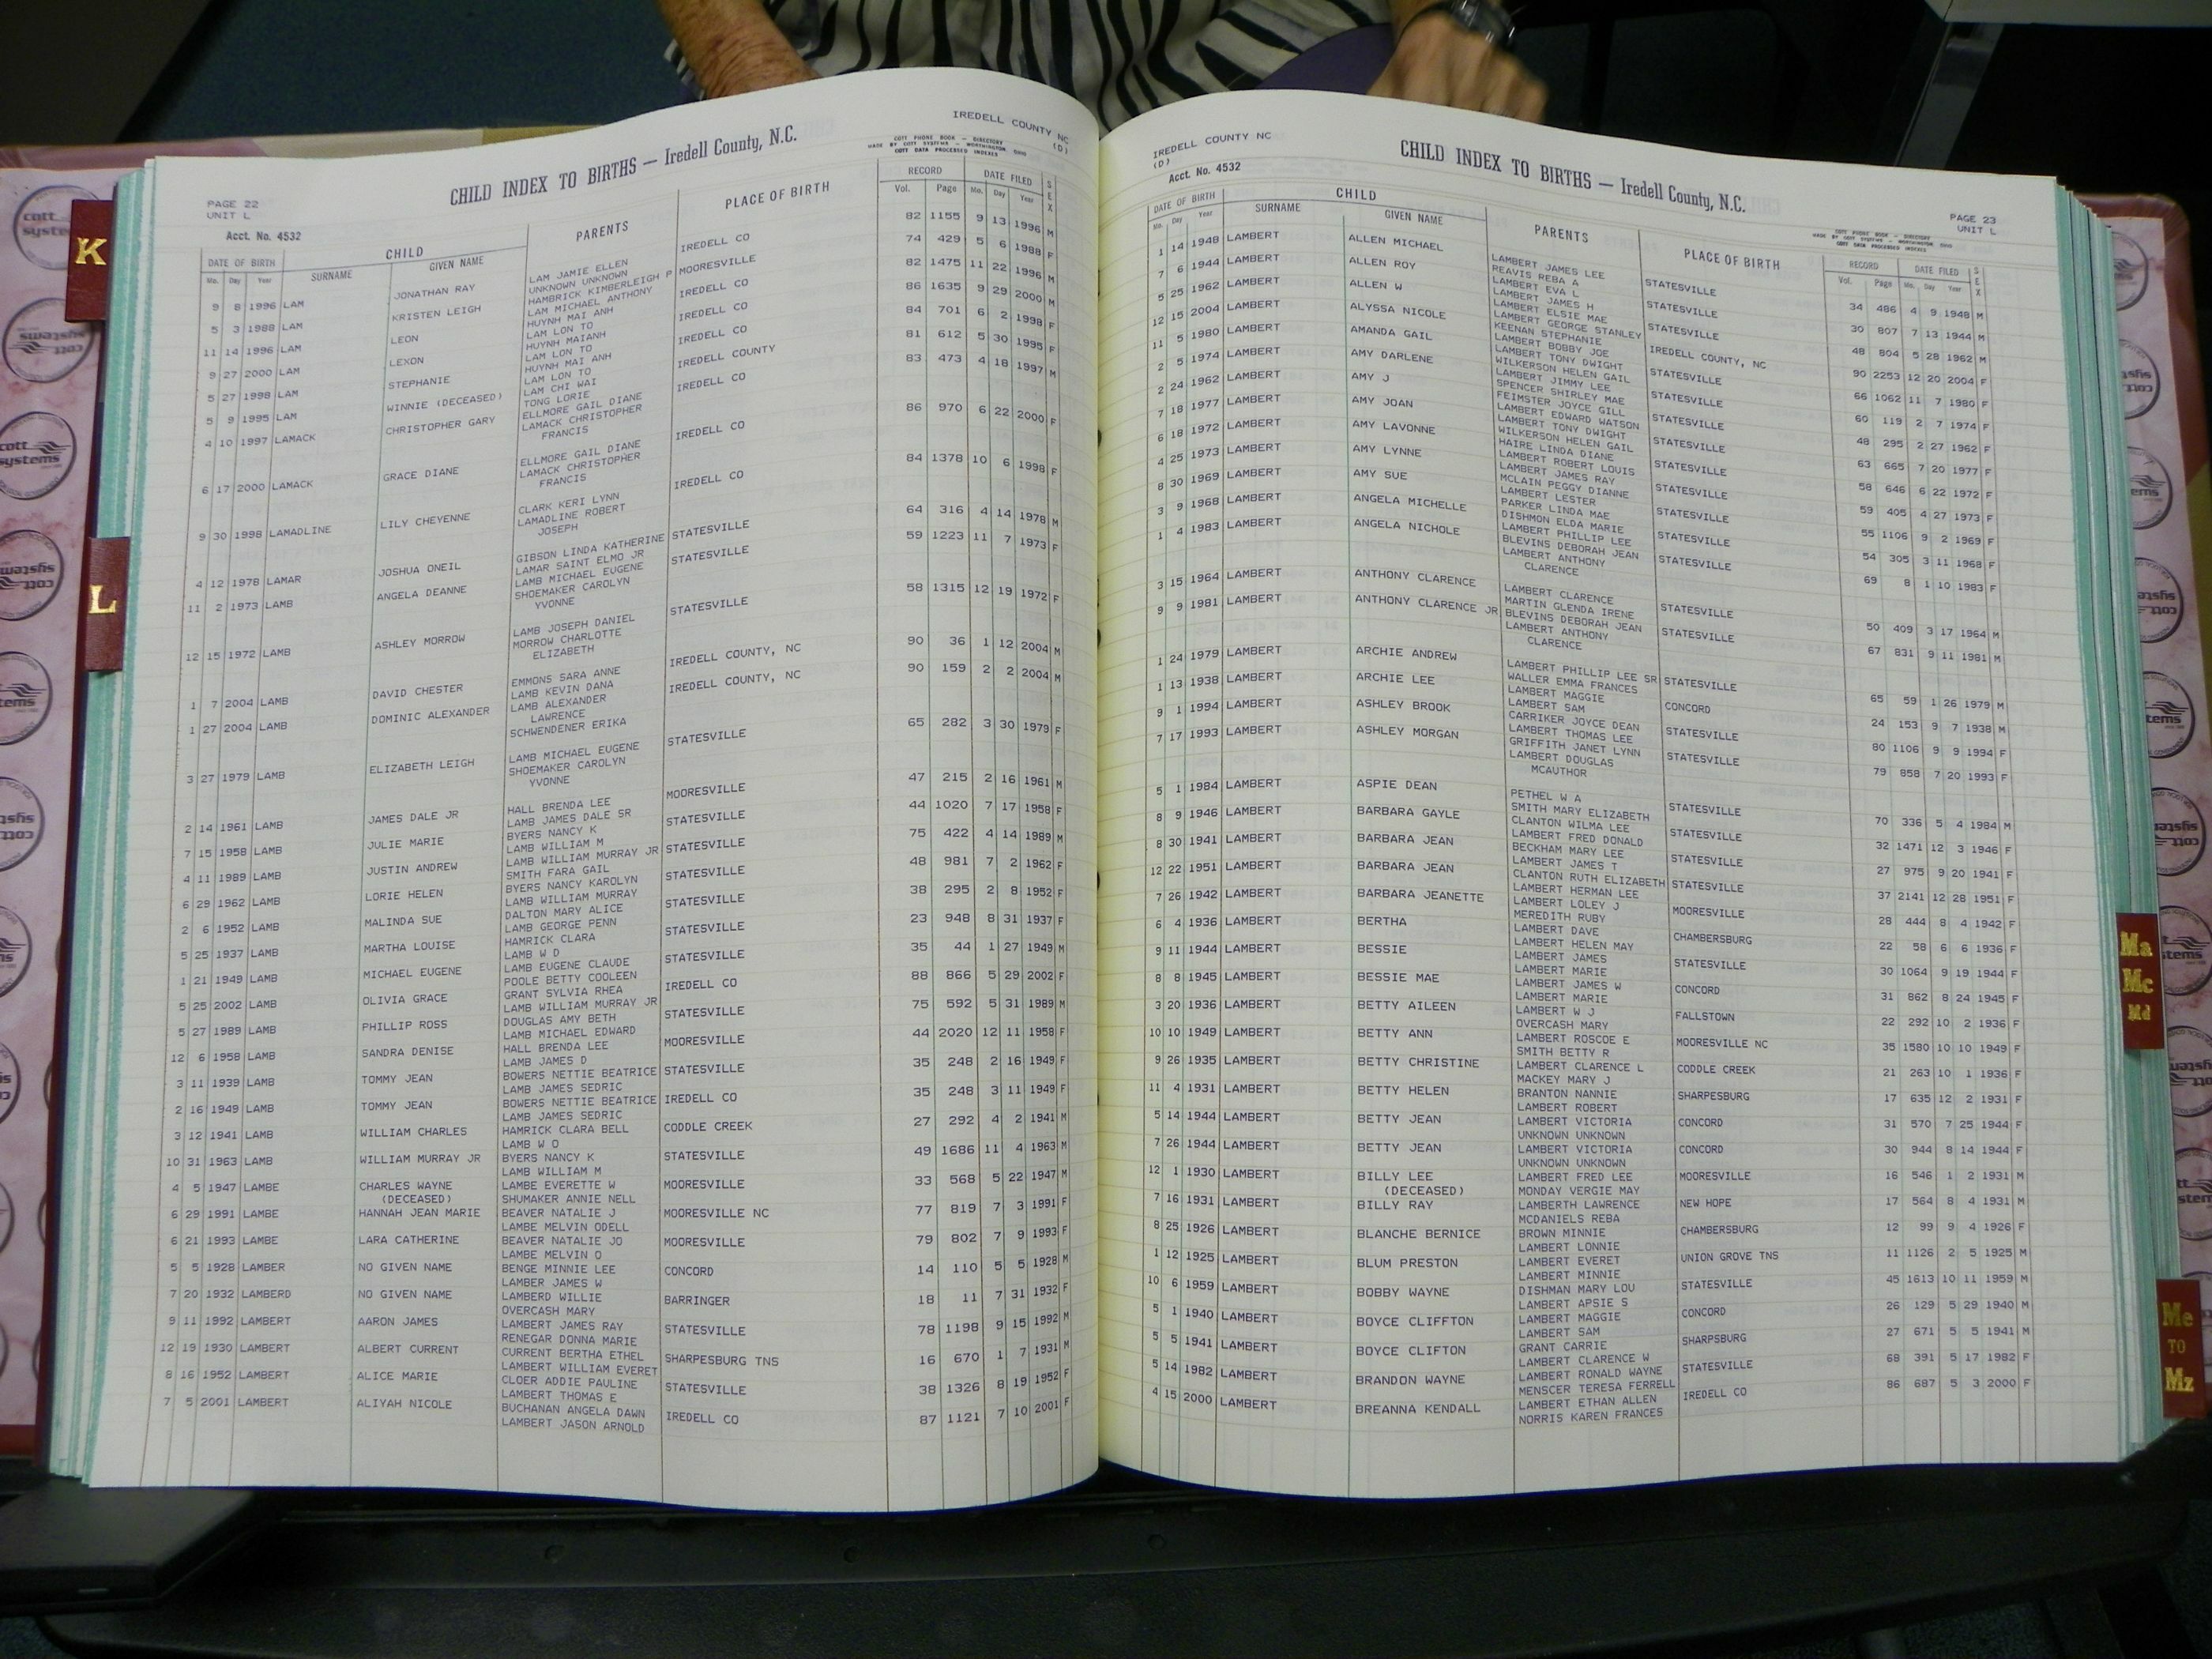 IREDELL COUNTY NC
(D)
CHILD INDEX TO BIRTHS — Iredell County, N.C.
COTT PHONE BOOK — DIRECTORY
MADE BY COTT SYSTEMS — WORTHINGTON, OHIO
COTT DATA PROCESSED INDEXES
PAGE 22
UNIT L
Acct. No. 4532
DATE OF BIRTH CHILD PARENTS PLACE OF BIRTH RECORD DATE FILED SEX
Mo. Day Year SURNAME GIVEN NAME Vol. Page Mo. Day Year
9 8 1996 LAM JONATHAN RAY LAM JAMIE ELLEN IREDELL CO 82 1155 9 13 1996 M
UNKNOWN UNKNOWN
5 3 1988 LAM KRISTEN LEIGH HAMBRICK KIMBERLEIGH P MOORESVILLE 74 429 5 6 1988 F
LAM MICHAEL ANTHONY
11 14 1996 LAM LEON HUYNH MAI ANH IREDELL CO 82 1475 11 22 1996 M
LAM LON TO
9 27 2000 LAM LEXON HUYNH MAIANH IREDELL CO 86 1635 9 29 2000 M
LAM LON TO
5 27 1998 LAM STEPHANIE HUYNH MAI ANH IREDELL CO 84 701 6 2 1998 F
LAM LON TO
5 9 1995 LAM WINNIE (DECEASED) LAM CHI WAI IREDELL COUNTY 81 612 5 30 1995 F
TONG LORIE
4 10 1997 LAMACK CHRISTOPHER GARY ELLMORE GAIL DIANE IREDELL CO 83 473 4 18 1997 M
LAMACK CHRISTOPHER
FRANCIS
6 17 2000 LAMACK GRACE DIANE ELLMORE GAIL DIANE IREDELL CO 86 970 6 22 2000 F
LAMACK CHRISTOPHER
FRANCIS
9 30 1998 LAMADLINE LILY CHEYENNE CLARK KERI LYNN IREDELL CO 84 1378 10 6 1998 F
LAMADLINE ROBERT
JOSEPH
4 12 1978 LAMAR JOSHUA ONEIL GIBSON LINDA KATHERINE STATESVILLE 64 316 4 14 1978 M
LAMAR SAINT ELMO JR
11 2 1973 LAMB ANGELA DEANNE LAMB MICHAEL EUGENE STATESVILLE 59 1223 11 7 1973 F
SHOEMAKER CAROLYN
YVONNE
12 15 1972 LAMB ASHLEY MORROW LAMB JOSEPH DANIEL STATESVILLE 58 1315 12 19 1972 F
MORROW CHARLOTTE
ELIZABETH
1 7 2004 LAMB DAVID CHESTER EMMONS SARA ANNE IREDELL COUNTY, NC 90 36 1 12 2004 M
LAMB KEVIN DANA
1 27 2004 LAMB DOMINIC ALEXANDER LAMB ALEXANDER IREDELL COUNTY, NC 90 159 2 2 2004 M
LAWRENCE
SCHWENDENER ERIKA
3 27 1979 LAMB ELIZABETH LEIGH LAMB MICHAEL EUGENE STATESVILLE 65 282 3 30 1979 F
SHOEMAKER CAROLYN
YVONNE
2 14 1961 LAMB JAMES DALE JR HALL BRENDA LEE MOORESVILLE 47 215 2 16 1961 M
LAMB JAMES DALE SR
7 15 1958 LAMB JULIE MARIE BYERS NANCY K STATESVILLE 44 1020 7 17 1958 F
LAMB WILLIAM M
4 11 1989 LAMB JUSTIN ANDREW LAMB WILLIAM MURRAY JR STATESVILLE 75 422 4 14 1989 M
SMITH FARA GAIL
6 29 1962 LAMB LORIE HELEN BYERS NANCY KAROLYN STATESVILLE 48 981 7 2 1962 F
LAMB WILLIAM MURRAY
2 6 1952 LAMB MALINDA SUE DALTON MARY ALICE STATESVILLE 38 295 2 8 1952 F
LAMB GEORGE PENN
5 25 1937 LAMB MARTHA LOUISE HAMRICK CLARA STATESVILLE 23 948 8 31 1937 F
LAMB W D
1 21 1949 LAMB MICHAEL EUGENE LAMB EUGENE CLAUDE STATESVILLE 35 44 1 27 1949 M
POOLE BETTY COOLEEN
5 25 2002 LAMB OLIVIA GRACE GRANT SYLVIA RHEA IREDELL CO 88 866 5 29 2002 F
LAMB WILLIAM MURRAY JR
5 27 1989 LAMB PHILLIP ROSS DOUGLAS AMY BETH STATESVILLE 75 592 5 31 1989 M
LAMB MICHAEL EDWARD
12 6 1958 LAMB SANDRA DENISE HALL BRENDA LEE MOORESVILLE 44 2020 12 11 1958 F
LAMB JAMES D
3 11 1939 LAMB TOMMY JEAN BOWERS NETTIE BEATRICE STATESVILLE 35 248 2 16 1949 F
LAMB JAMES SEDRIC
2 16 1949 LAMB TOMMY JEAN BOWERS NETTIE BEATRICE IREDELL CO 35 248 3 11 1949 F
LAMB JAMES SEDRIC
3 12 1941 LAMB WILLIAM CHARLES HAMRICK CLARA BELL CODDLE CREEK 27 292 4 2 1941 M
LAMB W O
10 31 1963 LAMB WILLIAM MURRAY JR BYERS NANCY K STATESVILLE 49 1686 11 4 1963 M
LAMB WILLIAM M
4 5 1947 LAMBE CHARLES WAYNE LAMBE EVERETTE W MOORESVILLE 33 568 5 22 1947 M
(DECEASED) SHUMAKER ANNIE NELL
6 29 1991 LAMBE HANNAH JEAN MARIE BEAVER NATALIE J MOORESVILLE NC 77 819 7 3 1991 F
LAMBE MELVIN ODELL
6 21 1993 LAMBE LARA CATHERINE BEAVER NATALIE JO MOORESVILLE 79 802 7 9 1993 F
LAMBE MELVIN O
5 5 1928 LAMBER NO GIVEN NAME BENGE MINNIE LEE CONCORD 14 110 5 5 1928 M
LAMBER JAMES W
7 20 1932 LAMBERD NO GIVEN NAME LAMBERD WILLIE BARRINGER 18 11 7 31 1932 F
OVERCASH MARY
9 11 1992 LAMBERT AARON JAMES LAMBERT JAMES RAY STATESVILLE 78 1198 9 15 1992 M
RENEGAR DONNA MARIE
12 19 1930 LAMBERT ALBERT CURRENT CURRENT BERTHA ETHEL SHARPESBURG TNS 16 670 1 7 1931 M
LAMBERT WILLIAM EVERET
8 16 1952 LAMBERT ALICE MARIE CLOER ADDIE PAULINE STATESVILLE 38 1326 8 19 1952 F
LAMBERT THOMAS E
7 5 2001 LAMBERT ALIYAH NICOLE BUCHANAN ANGELA DAWN IREDELL CO 87 1121 7 10 2001 F
LAMBERT JASON ARNOLD
IREDELL COUNTY NC
(D)
Acct. No. 4532
CHILD INDEX TO BIRTHS — Iredell County, N.C.
PAGE 23
UNIT L
COTT PHONE BOOK — DIRECTORY
MADE BY COTT SYSTEMS — WORTHINGTON, OHIO
COTT DATA PROCESSED INDEXES
DATE OF BIRTH CHILD PARENTS PLACE OF BIRTH RECORD DATE FILED SEX
Mo. Day Year SURNAME GIVEN NAME Vol. Page Mo. Day Year
1 14 1948 LAMBERT ALLEN MICHAEL LAMBERT JAMES LEE STATESVILLE 34 486 4 9 1948 M
REAVIS REBA A
7 6 1944 LAMBERT ALLEN ROY LAMBERT EVA L STATESVILLE 30 807 7 13 1944 M
LAMBERT JAMES H
5 25 1962 LAMBERT ALLEN W LAMBERT ELSIE MAE STATESVILLE 48 804 5 28 1962 M
LAMBERT GEORGE STANLEY
12 15 2004 LAMBERT ALYSSA NICOLE KEENAN STEPHANIE IREDELL COUNTY, NC 90 2253 12 20 2004 F
LAMBERT BOBBY JOE
11 5 1980 LAMBERT AMANDA GAIL LAMBERT TONY DWIGHT STATESVILLE 66 1062 11 7 1980 F
WILKERSON HELEN GAIL
2 5 1974 LAMBERT AMY DARLENE LAMBERT JIMMY LEE STATESVILLE 60 119 2 7 1974 F
SPENCER SHIRLEY MAE
2 24 1962 LAMBERT AMY J FEIMSTER JOYCE GILL STATESVILLE 48 295 2 27 1962 F
LAMBERT EDWARD WATSON
7 18 1977 LAMBERT AMY JOAN LAMBERT TONY DWIGHT STATESVILLE 63 665 7 20 1977 F
WILKERSON HELEN GAIL
6 18 1972 LAMBERT AMY LAVONNE HAIRE LINDA DIANE STATESVILLE 58 646 6 22 1972 F
LAMBERT ROBERT LOUIS
4 25 1973 LAMBERT AMY LYNNE LAMBERT JAMES RAY STATESVILLE 59 405 4 27 1973 F
MCLAIN PEGGY DIANNE
8 30 1969 LAMBERT AMY SUE LAMBERT LESTER STATESVILLE 55 1106 9 2 1969 F
PARKER LINDA MAE
3 9 1968 LAMBERT ANGELA MICHELLE DISHMON ELDA MARIE STATESVILLE 54 305 3 11 1968 F
LAMBERT PHILLIP LEE
1 4 1983 LAMBERT ANGELA NICHOLE BLEVINS DEBORAH JEAN STATESVILLE 69 8 1 10 1983 F
LAMBERT ANTHONY
CLARENCE
3 15 1964 LAMBERT ANTHONY CLARENCE LAMBERT CLARENCE STATESVILLE 50 409 3 17 1964 M
MARTIN GLENDA IRENE
9 9 1981 LAMBERT ANTHONY CLARENCE JR BLEVINS DEBORAH JEAN STATESVILLE 67 831 9 11 1981 M
LAMBERT ANTHONY
CLARENCE
1 24 1979 LAMBERT ARCHIE ANDREW LAMBERT PHILLIP LEE SR STATESVILLE 65 59 1 26 1979 M
WALLER EMMA FRANCES
1 13 1938 LAMBERT ARCHIE LEE LAMBERT MAGGIE CONCORD 24 153 9 7 1938 M
LAMBERT SAM
9 1 1994 LAMBERT ASHLEY BROOK CARRIKER JOYCE DEAN STATESVILLE 80 1106 9 9 1994 F
LAMBERT THOMAS LEE
7 17 1993 LAMBERT ASHLEY MORGAN GRIFFITH JANET LYNN STATESVILLE 79 858 7 20 1993 F
LAMBERT DOUGLAS
MCAUTHOR
5 1 1984 LAMBERT ASPIE DEAN PETHEL W A STATESVILLE 70 336 5 4 1984 M
SMITH MARY ELIZABETH
8 9 1946 LAMBERT BARBARA GAYLE CLANTON WILMA LEE STATESVILLE 32 1471 12 3 1946 F
LAMBERT FRED DONALD
8 30 1941 LAMBERT BARBARA JEAN BECKHAM MARY LEE STATESVILLE 27 975 9 20 1941 F
LAMBERT JAMES T
12 22 1951 LAMBERT BARBARA JEAN CLANTON RUTH ELIZABETH STATESVILLE 37 2141 12 28 1951 F
LAMBERT HERMAN LEE
7 26 1942 LAMBERT BARBARA JEANETTE LAMBERT LOLEY J MOORESVILLE 28 444 8 4 1942 F
MEREDITH RUBY
6 4 1936 LAMBERT BERTHA LAMBERT DAVE CHAMBERSBURG 22 58 6 6 1936 F
LAMBERT HELEN MAY
9 11 1944 LAMBERT BESSIE LAMBERT JAMES STATESVILLE 30 1064 9 19 1944 F
LAMBERT MARIE
8 8 1945 LAMBERT BESSIE MAE LAMBERT JAMES W CONCORD 31 862 8 24 1945 F
LAMBERT MARIE
3 20 1936 LAMBERT BETTY AILEEN LAMBERT W J FALLSTOWN 22 292 10 2 1936 F
OVERCASH MARY
10 10 1949 LAMBERT BETTY ANN LAMBERT ROSCOE E MOORESVILLE NC 35 1580 10 10 1949 F
SMITH BETTY R
9 26 1935 LAMBERT BETTY CHRISTINE LAMBERT CLARENCE L CODDLE CREEK 21 263 10 1 1936 F
MACKEY MARY J
11 4 1931 LAMBERT BETTY HELEN BRANTON NANNIE SHARPESBURG 17 635 12 2 1931 F
LAMBERT ROBERT
5 14 1944 LAMBERT BETTY JEAN LAMBERT VICTORIA CONCORD 31 570 7 25 1944 F
UNKNOWN UNKNOWN
7 26 1944 LAMBERT BETTY JEAN LAMBERT VICTORIA CONCORD 30 944 8 14 1944 F
UNKNOWN UNKNOWN
12 1 1930 LAMBERT BILLY LEE LAMBERT FRED LEE MOORESVILLE 16 546 1 2 1931 M
(DECEASED) MONDAY VERGIE MAY
7 16 1931 LAMBERT BILLY RAY LAMBERTH LAWRENCE NEW HOPE 17 564 8 4 1931 M
MCDANIELS REBA
8 25 1926 LAMBERT BLANCHE BERNICE BROWN MINNIE CHAMBERSBURG 12 99 9 4 1926 F
LAMBERT LONNIE
1 12 1925 LAMBERT BLUM PRESTON LAMBERT EVERET UNION GROVE TNS 11 1126 2 5 1925 M
LAMBERT MINNIE
10 6 1959 LAMBERT BOBBY WAYNE DISHMAN MARY LOU STATESVILLE 45 1613 10 11 1959 M
LAMBERT APSIE S
5 1 1940 LAMBERT BOYCE CLIFFTON LAMBERT MAGGIE CONCORD 26 129 5 29 1940 M
LAMBERT SAM
5 5 1941 LAMBERT BOYCE CLIFTON GRANT CARRIE SHARPSBURG 27 671 5 5 1941 M
LAMBERT CLARENCE W
5 14 1982 LAMBERT BRANDON WAYNE LAMBERT RONALD WAYNE STATESVILLE 68 391 5 17 1982 F
MENSCER TERESA FERRELL
4 15 2000 LAMBERT BREANNA KENDALL LAMBERT ETHAN ALLEN IREDELL CO 86 687 5 3 2000 F
NORRIS KAREN FRANCES
K
L
Ma
Mc
Md
Me
TO
Mz
cott
systems